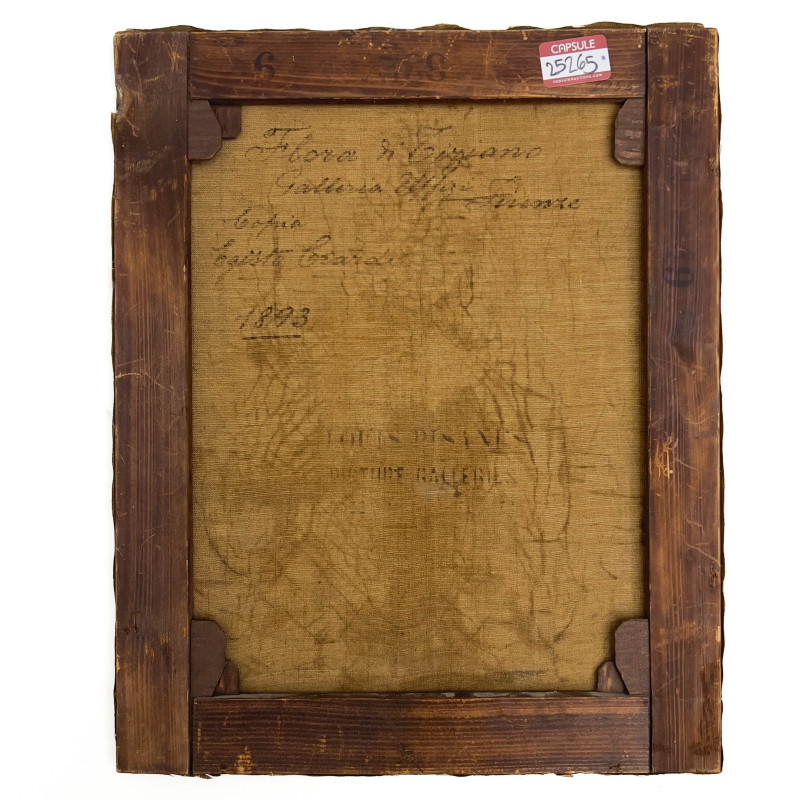 6 68
CAPSULE
25265
Flora di Tiziano
Galleria Uffizi Firenze
Copia
Egisto
1893
LOUIS PISANI'S
PICTURE GALLERIES